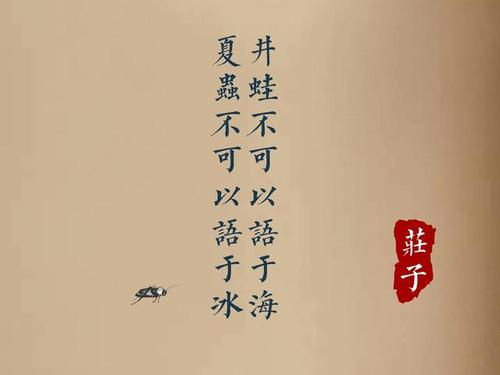 井蛙不可以語于海
夏蟲不可以語于冰
莊子